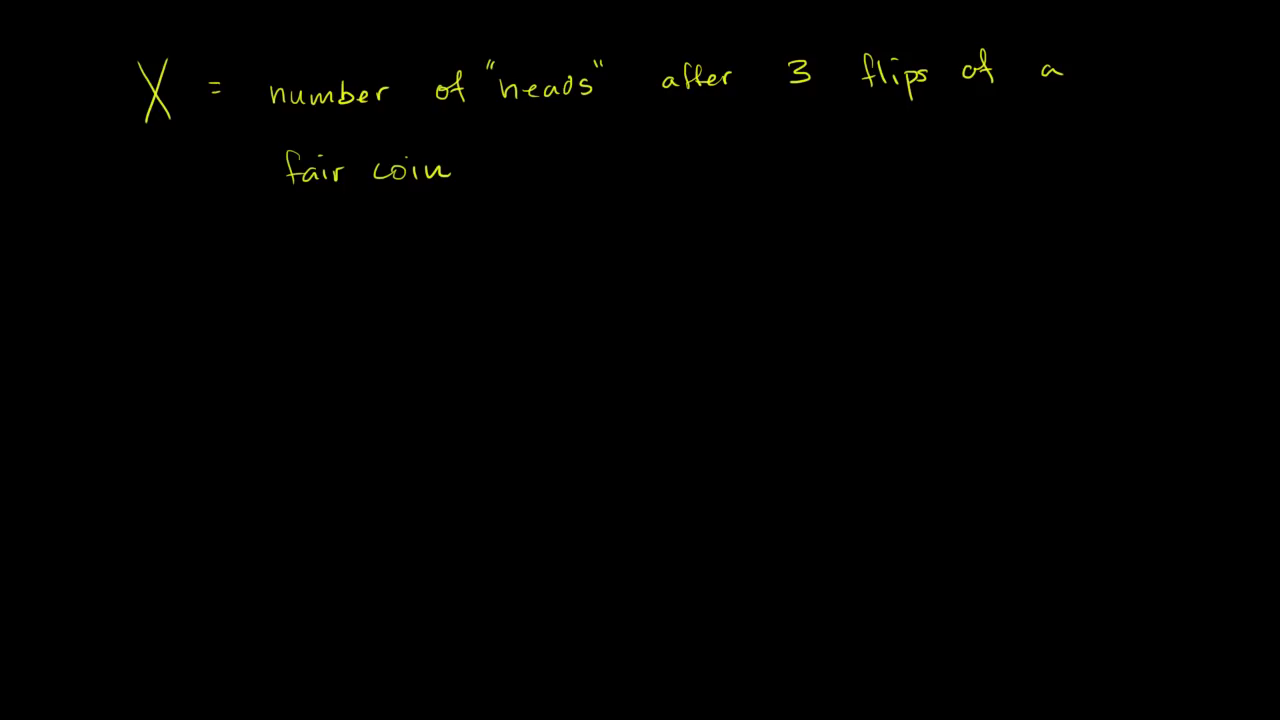 X = number of "heads" after 3 flips of a
fair coin